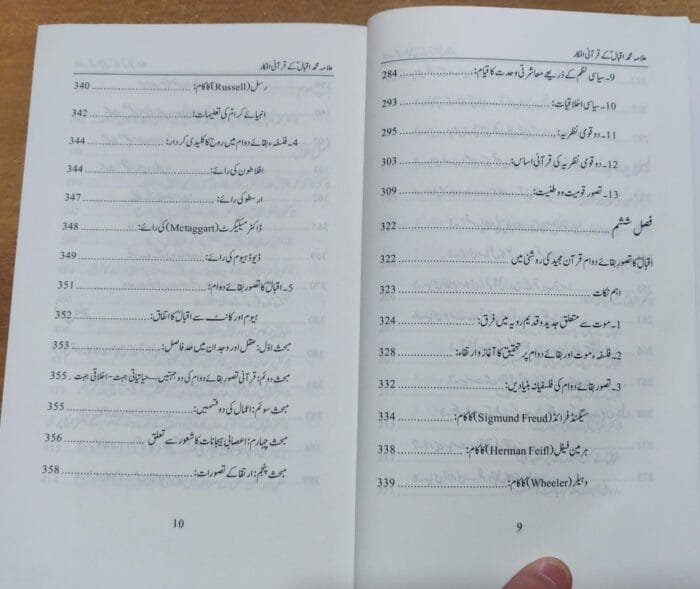 علامہ محمد اقبالؒ کے قرآنی افکار
9۔ سیاسی نظم کے ذریعے معاشرتی وحدت کا قیام: 284
10۔ سیاسی اخلاقیات: 293
11۔ دو قومی نظریہ: 295
12۔ دو قومی نظریہ کی قرآنی اساس: 303
13۔ تصور قومیت و وطنیت: 309
فصل ششم 322
اقبالؒ کا تصور بقائے دوام قرآن مجید کی روشنی میں 322
اہم نکات 323
1۔ موت سے متعلق جدید و قدیم رویہ میں فرق: 324
2۔ فلسفہء موت اور بقائے دوام پر تحقیق کا آغاز و ارتقاء: 328
3۔ تصور بقائے دوام کی فلسفیانہ بنیادیں: 332
سیگمنڈ فرائڈ (Sigmund Freud) کا کام: 334
ہرمین فیفل (Herman Feifl) کا کام: 338
وہیلر (Wheeler) کا کام: 339
9
علامہ محمد اقبالؒ کے قرآنی افکار
رسل (Russell) کا کام: 340
انبیائے کرامؑ کی تعلیمات: 342
4۔ فلسفہء بقائے دوام میں روح کا کلیدی کردار: 344
افلاطون کی رائے: 344
ارسطو کی رائے: 347
ڈاکٹر میکٹیگرٹ (Mctaggart) کی رائے: 348
ڈیوڈ ہیوم کی رائے: 349
5۔ اقبالؒ کا تصور بقائے دوام: 351
ہیوم اور کانٹ سے اقبالؒ کا اتفاق: 352
مبحث اوّل: عقل اور وجدان میں حد فاصل: 353
مبحث دوئم: قرآنی تصور بقائے دوام کی دو جہتیں — حیاتیاتی جہت – اخلاقی جہت 355
مبحث سوئم: اعمال کی دو قسمیں: 355
مبحث چہارم: اعصابی ہیجانات کا شعور سے تعلق 356
مبحث پنجم: ارتقا کے تصورات: 358
10